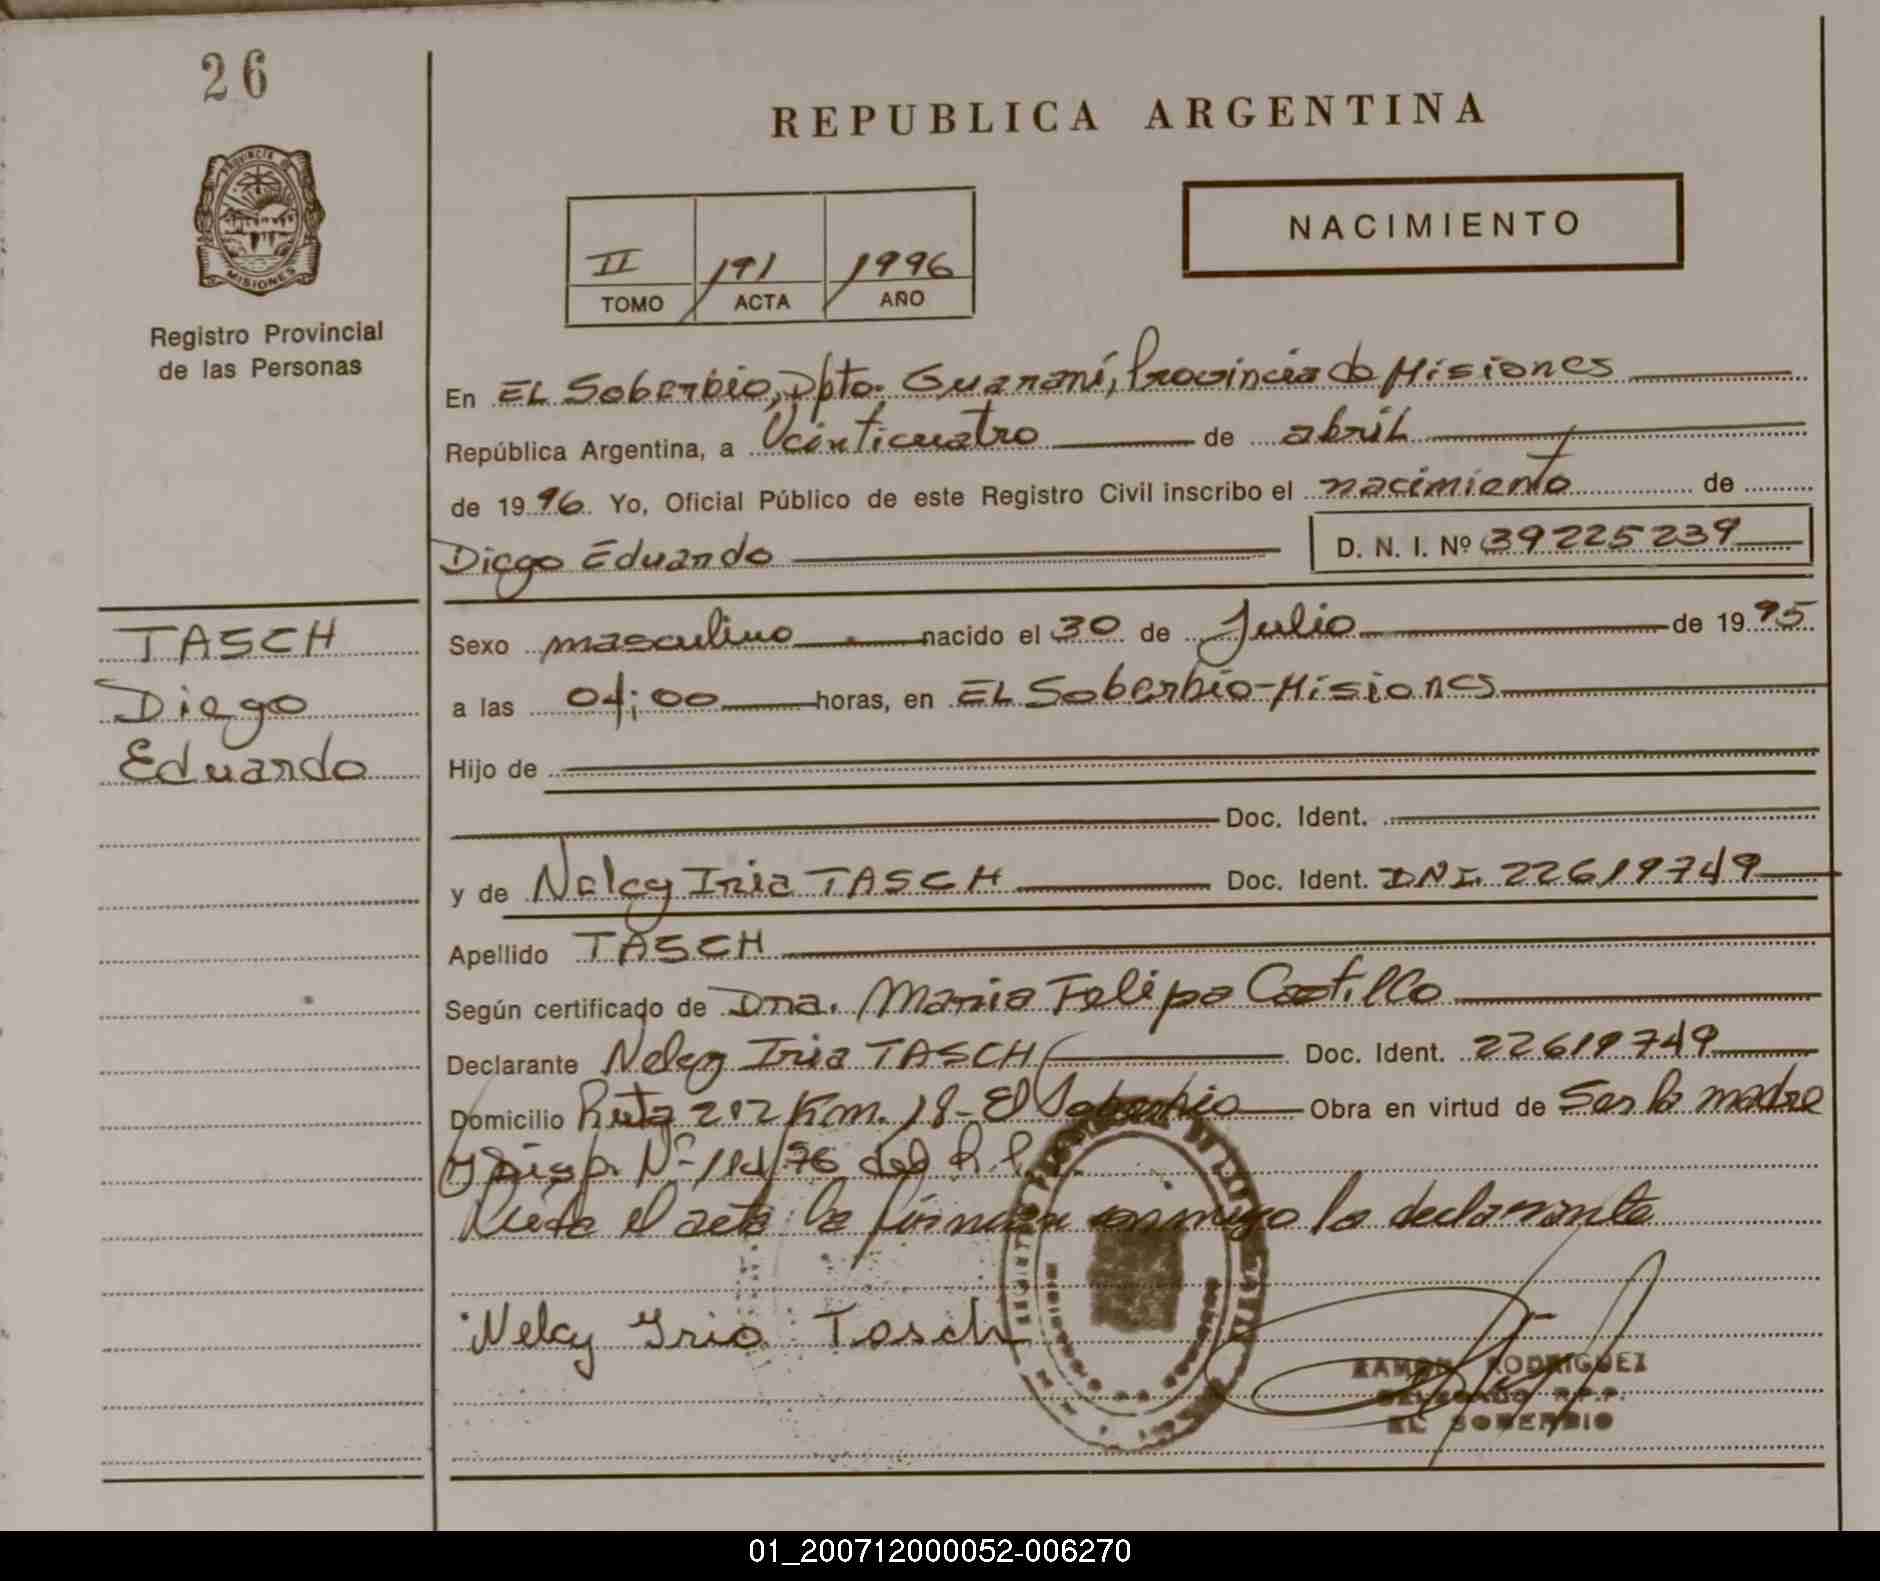 26
REPUBLICA ARGENTINA
PROVINCIA DE
MISIONES
NACIMIENTO
II 191 1996
TOMO ACTA AÑO
Registro Provincial
de las Personas
En EL Soberbio, Dpto. Guaraní, Provincia de Misiones
República Argentina, a Veinticuatro de abril
de 1996. Yo, Oficial Público de este Registro Civil inscribo el nacimiento de
Diego Eduardo D. N. I. Nº 39225239
TASCH
Diego
Eduardo
Sexo masculino nacido el 30 de Julio de 1995
a las 04:00 horas, en EL Soberbio-Misiones
Hijo de
Doc. Ident.
y de Nelcy Iria TASCH Doc. Ident. DNI. 22619749
Apellido TASCH
Según certificado de Dna. Maria Felipa Castillo
Declarante Nelcy Iria TASCH Doc. Ident. 22619749
Domicilio Ruta 212 Km. 18- El Soberbio Obra en virtud de Ser la madre
y Disp. Nº 114/76 del R.P.P.
Leida el acta la firma conmigo la declarante
Nelcy Iria Tasch
RAMON RODRIGUEZ
DELEGADO R.P.P.
EL SOBERBIO
01_200712000052-006270